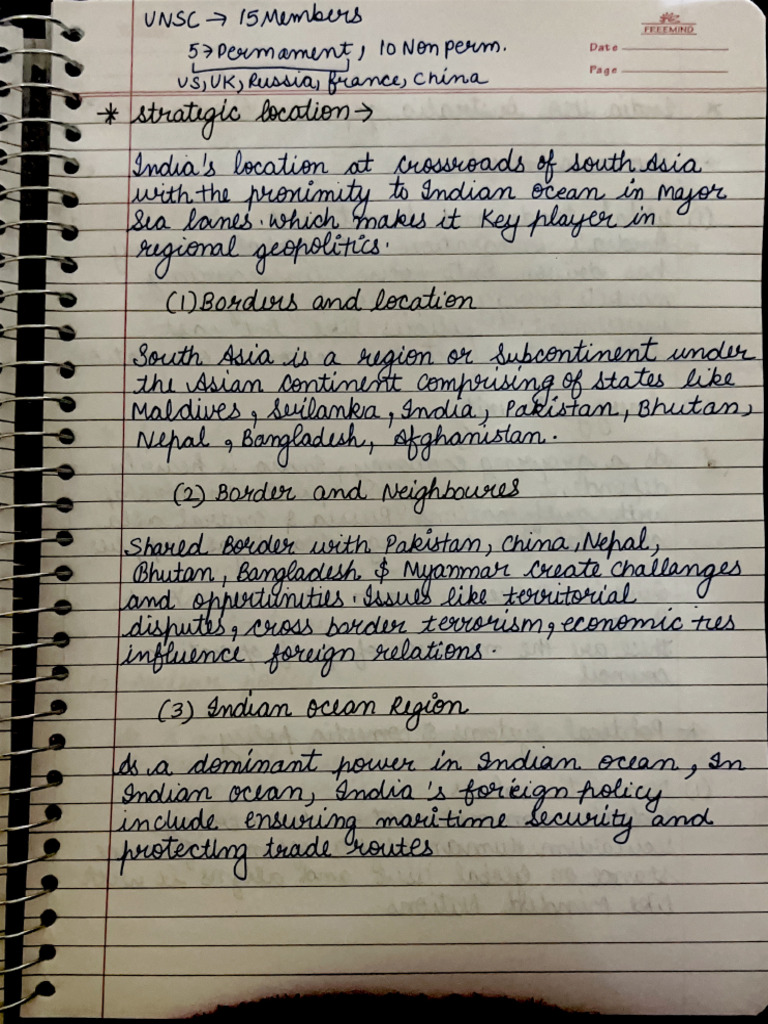 UNSC → 15 Members
FREEMIND
5 → Permament, 10 Non perm.
Date
US, UK, Russia, france, China
Page
* Strategic location →
India's location at crossroads of south Asia
with the proximity to Indian ocean in Major
Sea lanes. which makes it Key player in
regional geopolitics.
(1) Borders and location
South Asia is a region or Subcontinent under
the Asian continent comprising of states like
Maldives, Srilanka, India, Pakistan, Bhutan,
Nepal, Bangladesh, Afghanistan.
(2) Border and Neighboures
Shared Border with Pakistan, China, Nepal,
Bhutan, Bangladesh & Myanmar create challanges
and oppertunities. Issues like territorial
disputes, cross border terrorism, economic ties
influence foreign relations.
(3) Indian ocean Region
As a dominant power in Indian ocean, In
Indian ocean, India's foreign policy
include ensuring maritime security and
protecting trade routes